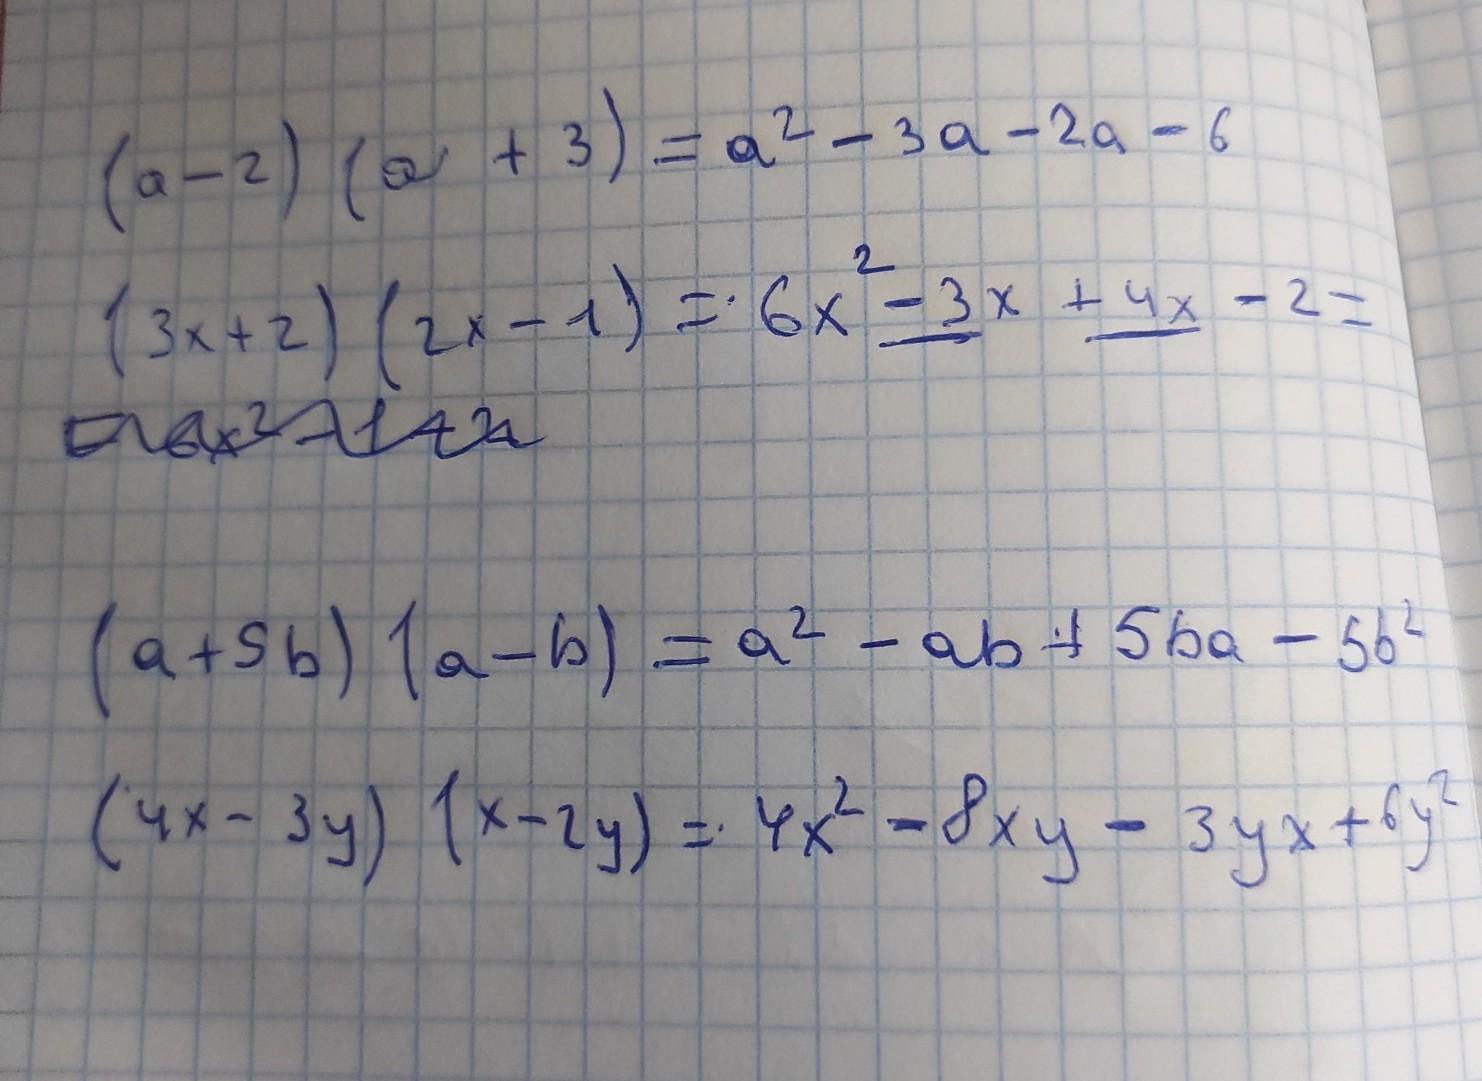 (a-2) (a + 3) = a² - 3a - 2a - 6
(3x+2) (2x-1) = 6x² - 3x + 4x - 2 =
(a+5b) (a-b) = a² - ab + 5ba - 5b²
(4x-3y) (x-2y) = 4x² - 8xy - 3yx + 6y²